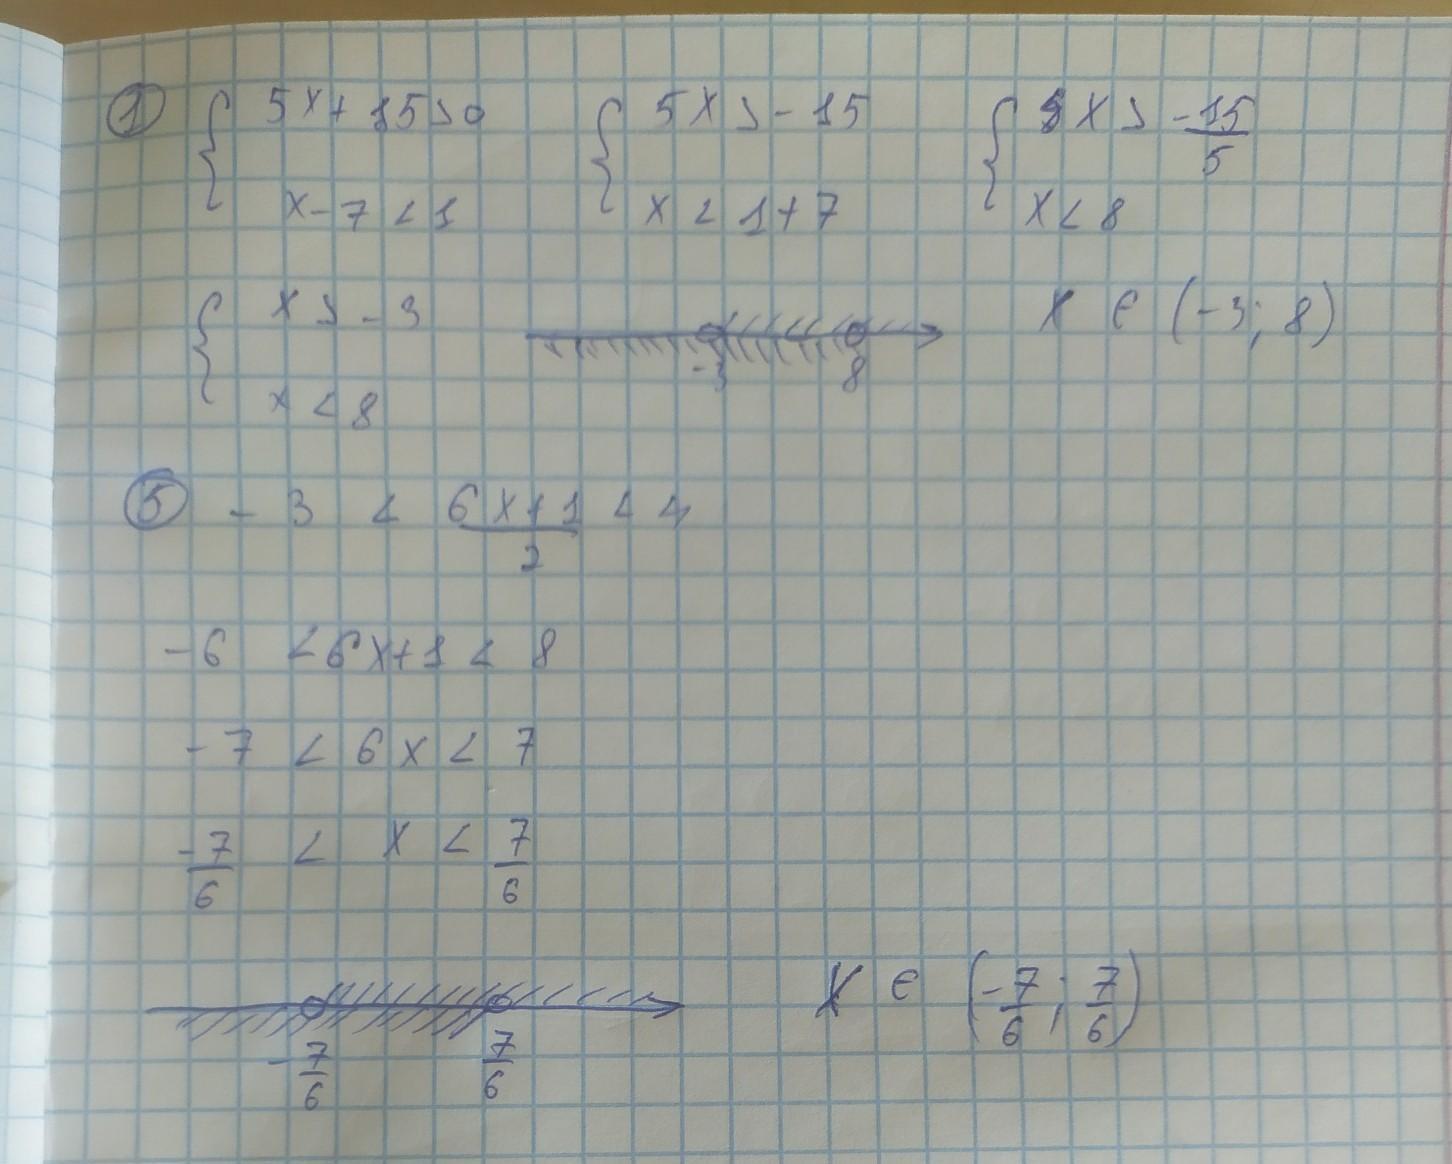 ① { 5x + 15 > 0 { 5x > -15 { x > -15/5
x - 7 < 1 x < 1 + 7 x < 8
{ x > -3 -3 8 x ∈ (-3; 8)
x < 8
⑤ -3 < (6x+1)/2 < 4
-6 < 6x+1 < 8
-7 < 6x < 7
-7/6 < x < 7/6
-7/6 7/6 x ∈ (-7/6; 7/6)